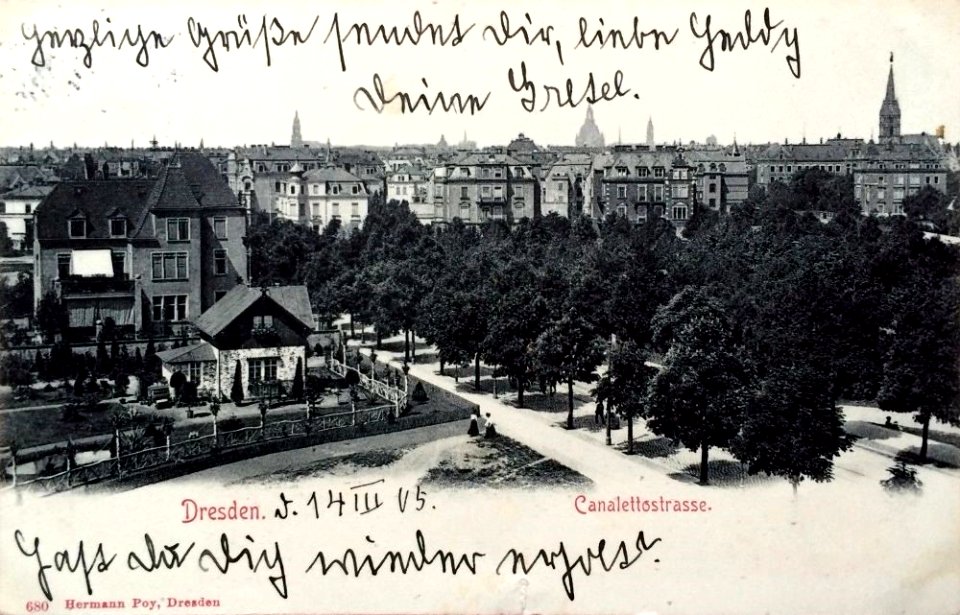 Herzliche Grüße sendet Dir, liebe Heddy
Deine Gretel.
Dresden. d. 14 III 05.
Canalettostrasse.
Hast Du Dich wieder erholt?
680 Hermann Poy, Dresden